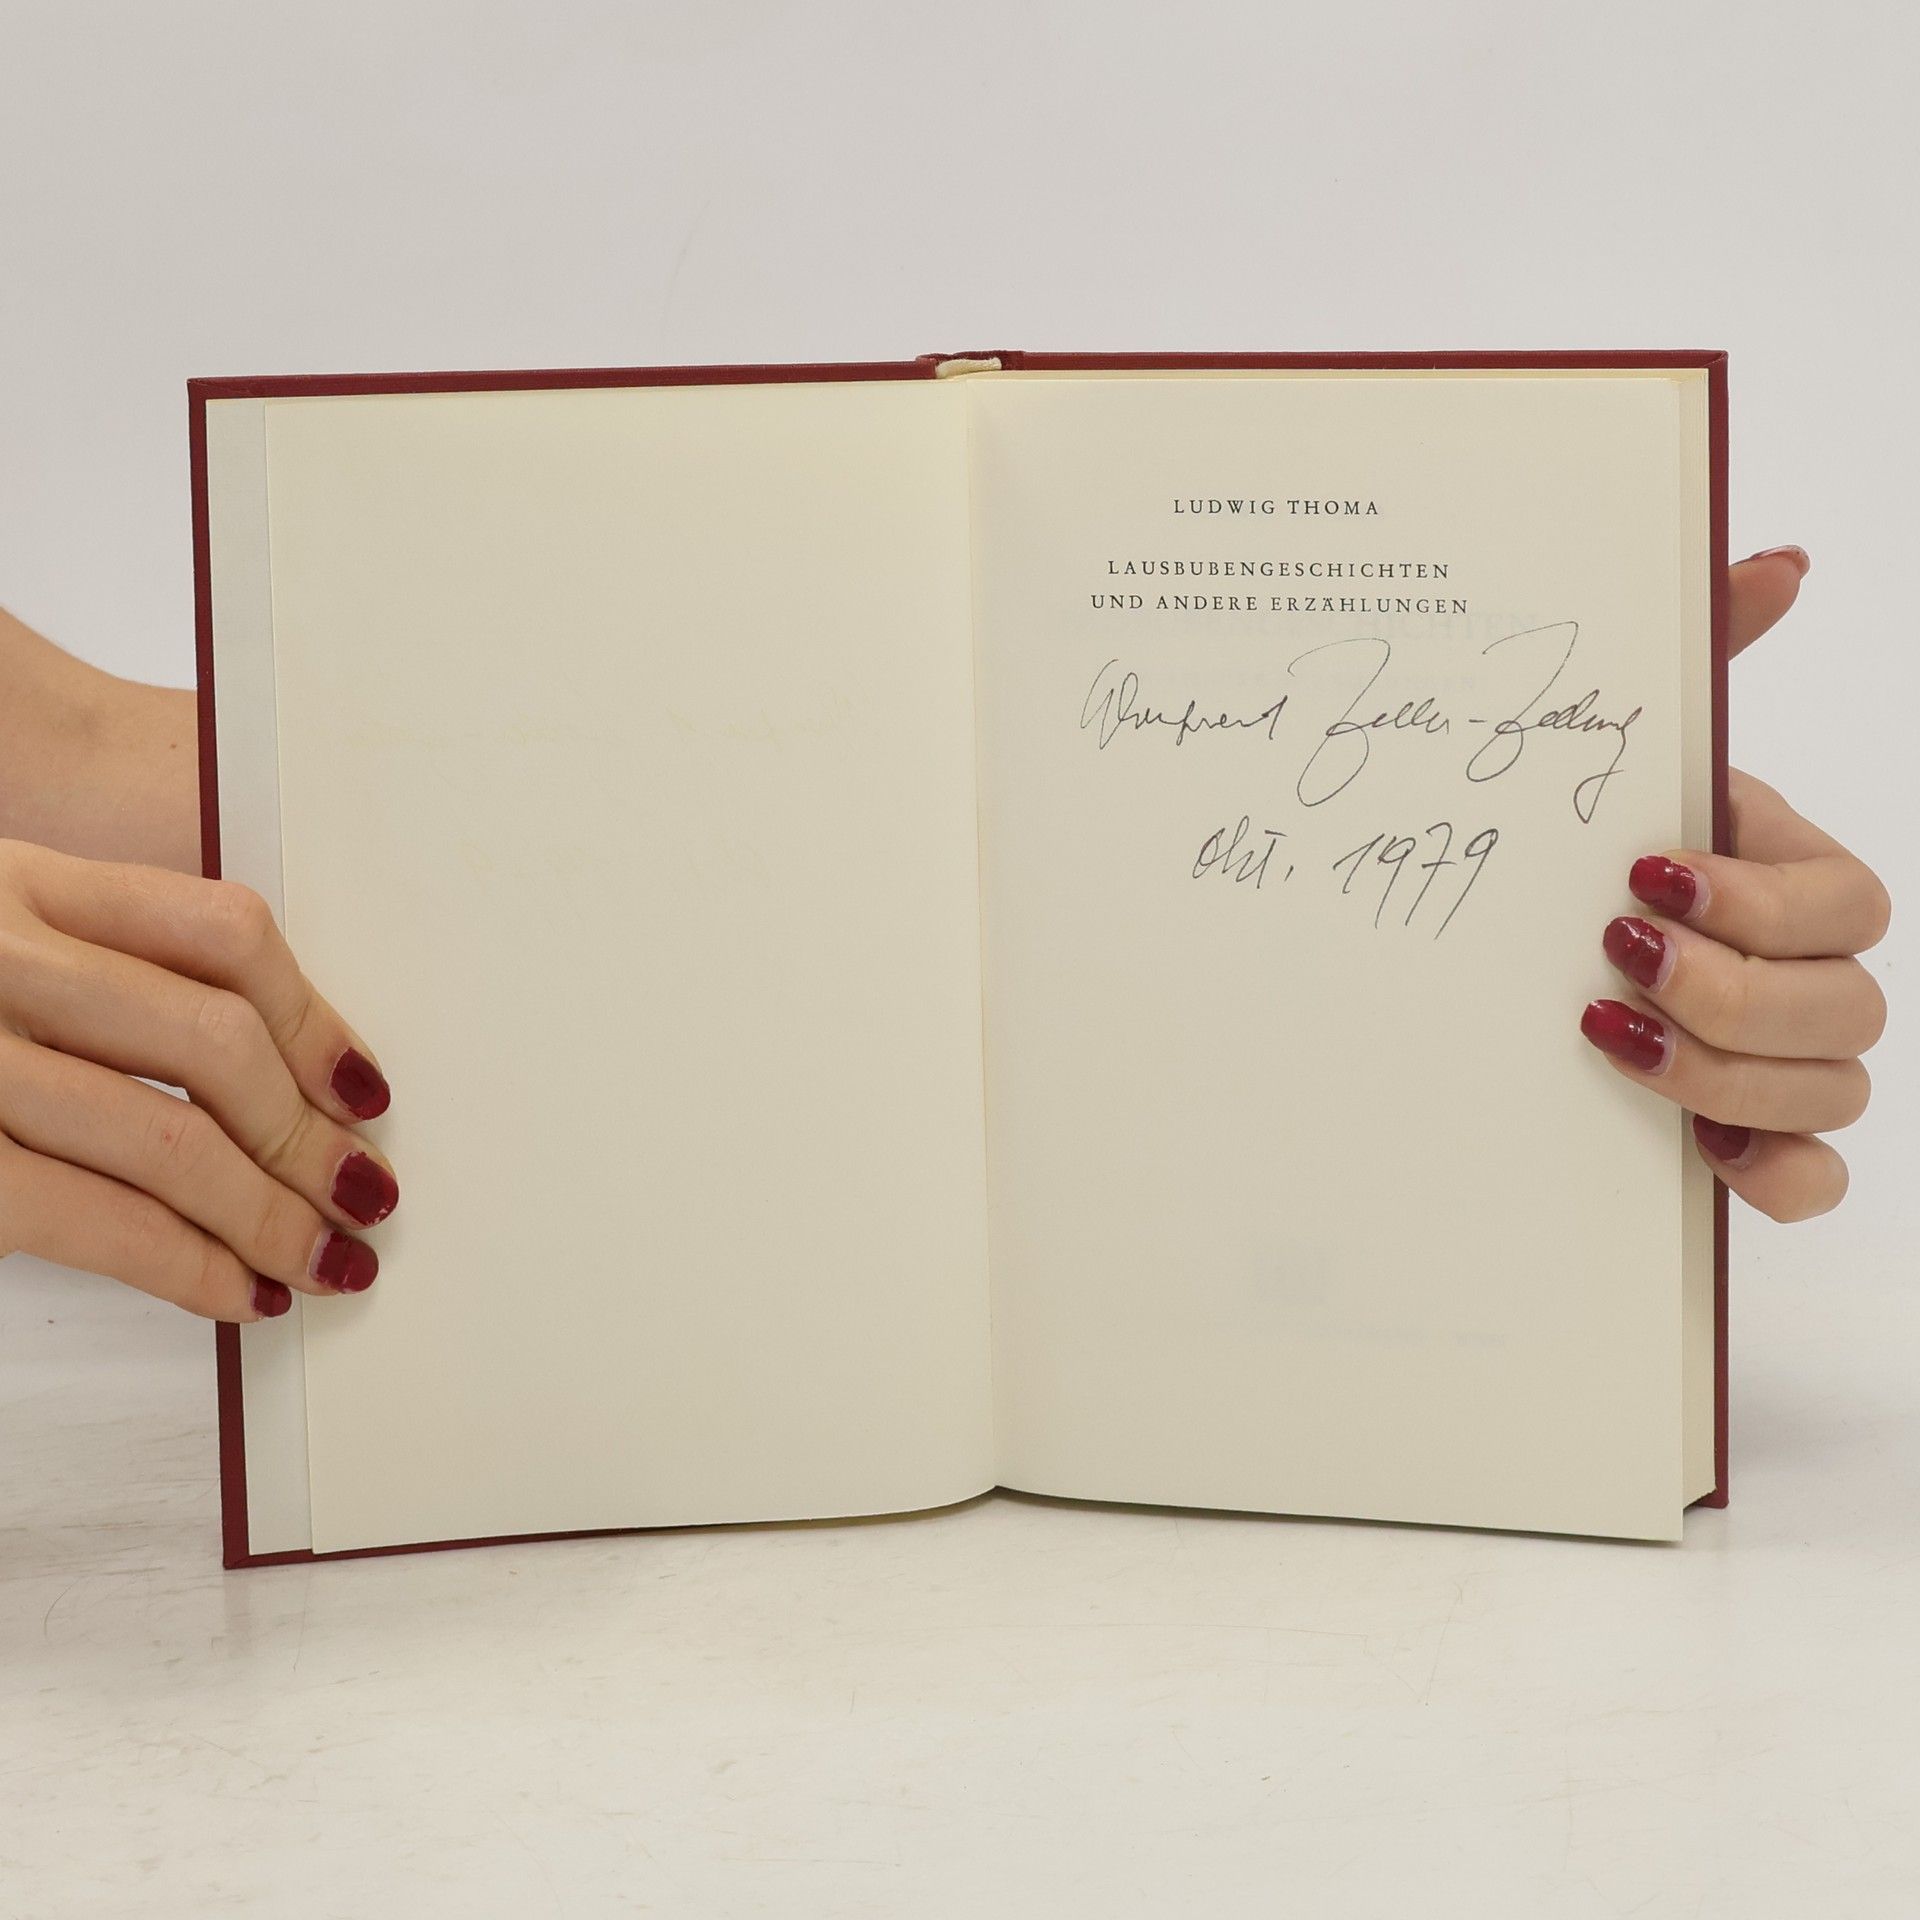 LUDWIG THOMA
LAUSBUBENGESCHICHTEN
UND ANDERE ERZÄHLUNGEN
Zeller-
Okt. 1979